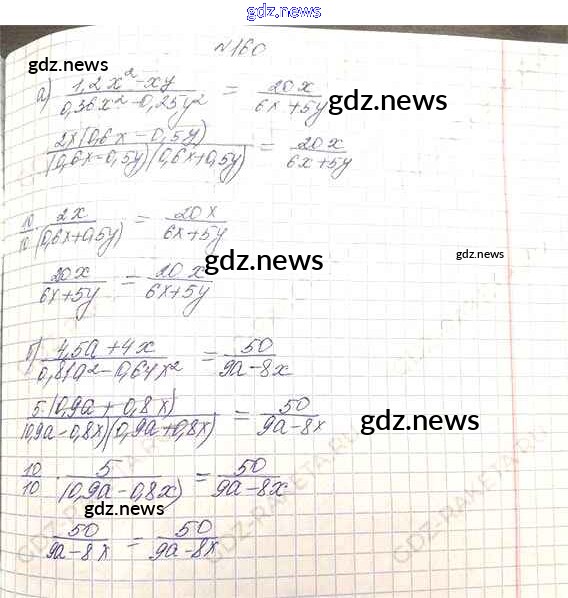 gdz.news
№160
gdz.news
а) (1,2x² - xy)/(0,36x² - 0,25y²) = 20x/(6x + 5y)
gdz.news
2x(0,6x - 0,5y)/((0,6x - 0,5y)(0,6x + 0,5y)) = 20x/(6x + 5y)
10/10 · 2x/(0,6x + 0,5y) = 20x/(6x + 5y)
gdz.news
gdz.news
20x/(6x + 5y) = 20x/(6x + 5y)
б) (4,5a + 4x)/(0,81a² - 0,64x²) = 50/(9a - 8x)
5(0,9a + 0,8x)/((0,9a - 0,8x)(0,9a + 0,8x)) = 50/(9a - 8x)
gdz.news
10/10 · 5/(0,9a - 0,8x) = 50/(9a - 8x)
gdz.news
50/(9a - 8x) = 50/(9a - 8x)
GDZ-RAKETA.RU
GDZ-RAKETA.RU